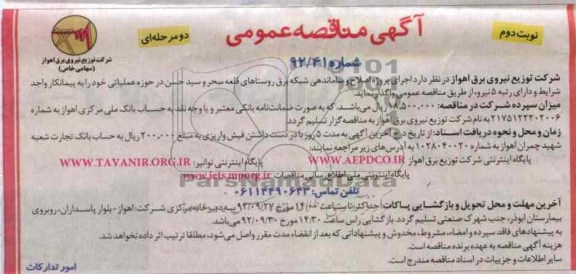 نوبت دوم
آگهی مناقصه عمومی
دو مرحله‌ای
شماره ۹۲/۴۱
شرکت توزیع نیروی برق اهواز
(سهامی خاص)
شرکت توزیع نیروی برق اهواز در نظر دارد اجرای پروژه اصلاح و ساماندهی شبکه برق روستاهای قلعه سحر و سید حسن در حوزه عملیاتی خود را به پیمانکار واجد
شرایط و دارای رتبه ۵ نیرو، از طریق مناقصه عمومی واگذار نماید.
میزان سپرده شرکت در مناقصه: ۱۸،۵۰۰،۰۰۰ ریال می‌باشد. که به صورت ضمانت‌نامه بانکی معتبر و یا وجه نقد به حساب بانک ملی مرکزی اهواز به شماره
۲۱۷۵۱۲۲۲۰۲۰۰۶ به نام شرکت توزیع نیروی برق اهواز به مناقصه‌گزار تسلیم گردد.
زمان و محل و نحوه دریافت اسناد: از تاریخ درج آخرین آگهی به مدت ۵ روز با در دست داشتن فیش واریزی به مبلغ ۲۰۰،۰۰۰ ریال به حساب بانک تجارت شعبه
شهید چمران اهواز به شماره ۱۰۲۸۰۴۰۰۲۰ به آدرس‌های زیر مراجعه نمایند:
پایگاه اینترنتی شرکت توزیع برق اهواز WWW.AEPDCO.IR پایگاه اینترنتی توانیر: WWW.TAVANIR.ORG.IR
پایگاه اینترنتی ملی اطلاع‌رسانی مناقصات www.iets.mporg.ir
ParsNamadData
تلفن تماس: ۰۶۱۱۴۴۹۰۶۴۳
آخرین مهلت و محل تحویل و بازگشایی پاکات: حداکثر تا ساعت ۱۴:۰۰ مورخ ۹۲/۰۹/۲۷ به دبیرخانه مرکزی شرکت: اهواز - بلوار پاسداران، روبروی
بیمارستان ابوذر، جنب شهرک صنعتی تسلیم گردد. بازگشایی راس ساعت ۱۴:۳۰ مورخ ۹۲/۰۹/۳۰ می‌باشد.
به پیشنهادهای فاقد سپرده و امضاء، مشروط، مخدوش و پیشنهاداتی که بعد از انقضاء مدت مقرر واصل می‌شود، مطلقا ترتیب اثر داده نخواهد شد.
هزینه آگهی مناقصه به عهده برنده مناقصه است.
سایر اطلاعات و جزییات در اسناد مناقصه مندرج است.
امور تدارکات